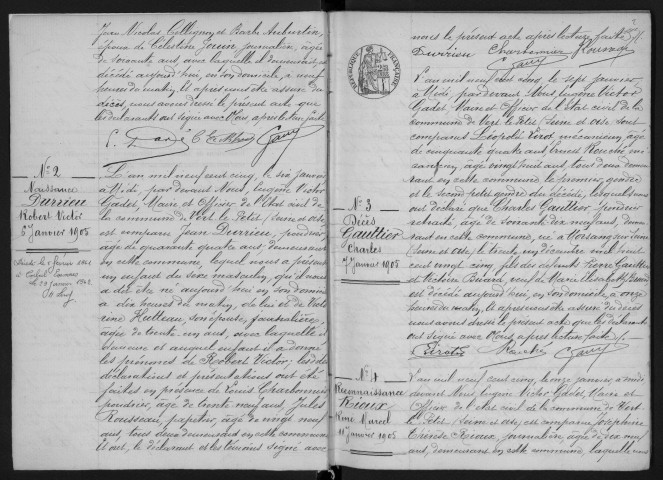 Jean Nicolas Collignon et Barbe Aubertin,
épouse de Célestin Jouin journalier, âgé
de soixante ans, avec laquelle il demeurait, est
décédé aujourd'hui, en son domicile, à neuf
heures du matin, et après nous être assuré du
décès, nous avons dressé le présent acte que
les déclarants ont signé avec Nous après lecture faite
Gaury
N° 2
Naissance
Durrieu
Robert Victor
6 Janvier 1905
L'an mil neuf cent cinq, le six janvier
à Midi, par devant Nous, Eugène Victor
Gadet, Maire et Officier de l'Etat civil de
la commune de Vert le Petit, (Seine et Oise)
est comparu Jean Durrieu, poudrier,
âgé de quarante quatre ans, demeurant
en cette commune, lequel nous a présenté
un enfant du sexe masculin, qu'il nous
a dit être né aujourd'hui en son domicile
à dix heures du matin, de lui et de Victo
rine Hutteau, son épouse, journalière,
âgée de trente un ans, avec laquelle il
demeure et auquel enfant il a donné
les prénoms de Robert Victor, lesdites
déclarations et présentations ont été
faites en présence de Louis Charbonnier
poudrier, âgé de trente neuf ans, Jules
Rousseau, papetier, âgé de vingt neuf
ans, tous deux demeurant en cette commune
et ont, le déclarant et les témoins signé avec
nous le présent acte après lecture faite
Durrieu Charbonnier Rousseau
Gaury
RÉPUBLIQUE FRANÇAISE
L'an mil neuf cent cinq, le sept janvier,
à Midi, par devant Nous, Eugène Victor
Gadet, Maire et Officier de l'Etat civil de la
commune de Vert le Petit, (Seine et Oise) sont
comparus Léopold Virot, mécanicien, âgé
de cinquante quatre ans, Ernest Rouché mé
canicien, âgé de vingt huit ans, tous deux demeu
rant en cette commune, le premier gendre
et le second petit gendre du décédé, lesquels nous
ont déclaré que Charles Gaultier, poudrier
retraité, âgé de soixante dix neuf ans, demeu
rant en cette commune, né à
(Seine et Oise), le trente un décembre mil huit
cent vingt cinq, fils des défunts Pierre Gaultier
et Victoire Biard, veuf de Marie Elisabeth
est décédé aujourd'hui, en son domicile, à onze
heures du matin, et après nous être assuré du décès
nous avons dressé le présent acte que les déclarants
ont signé avec Nous après lecture faite.
Virot Rouché Gaury
N° 3
Décès
Gaultier
Charles
7 Janvier 1905
N° 4
Reconnaissance
Rioux
René Marcel
11 Janvier 1905
L'an mil neuf cent cinq, le onze janvier, à midi
devant Nous Eugène Victor Gadet, Maire et
Officier de l'état civil de la commune de Vert
le Petit, (Seine et Oise) est comparue Joséphine
Thérèse Rioux, journalière, âgée de dix neuf
ans, demeurant en cette commune, laquelle nous